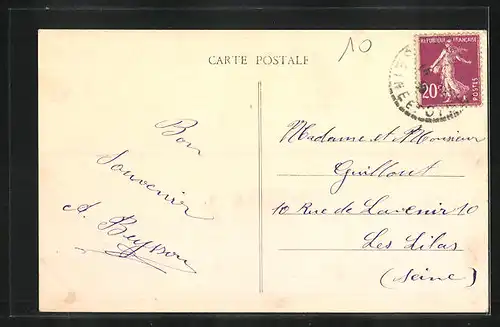 10
CARTE POSTALE
REPUBLIQUE FRANÇAISE
20c
POSTES
Bon
Souvenir
A.
Madame et Monsieur
Guillout
10 Rue de Lavenir 10
Les Lilas
(Seine)